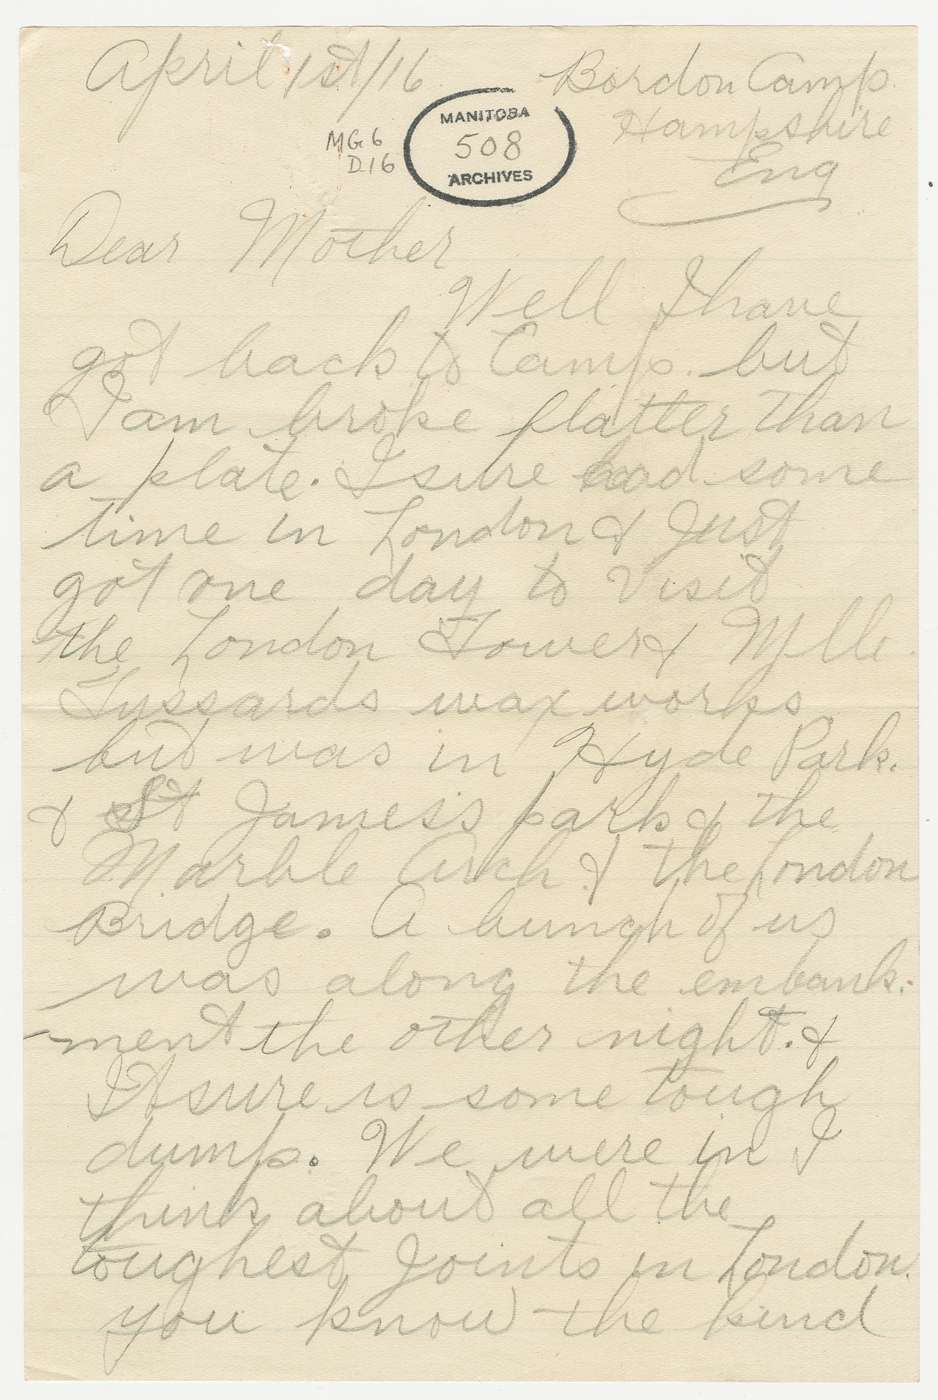 April 1st/16 Bordon Camp.
Hampshire
Eng
MG6
D16
MANITOBA
508
ARCHIVES
Dear Mother
Well I have
got back to Camp. but
I am broke flatter than
a plate. I sure had some
time in London & Just
got one day to visit
the London Tower & Mlle.
Tussards wax works
but was in Hyde Park.
& St James's park & the
Marble Arch & the London
Bridge. A bunch of us
was along the embank-
ment the other night. &
It sure is some tough
dump. We were in I
think about all the
toughest Joints in London.
you know the kind